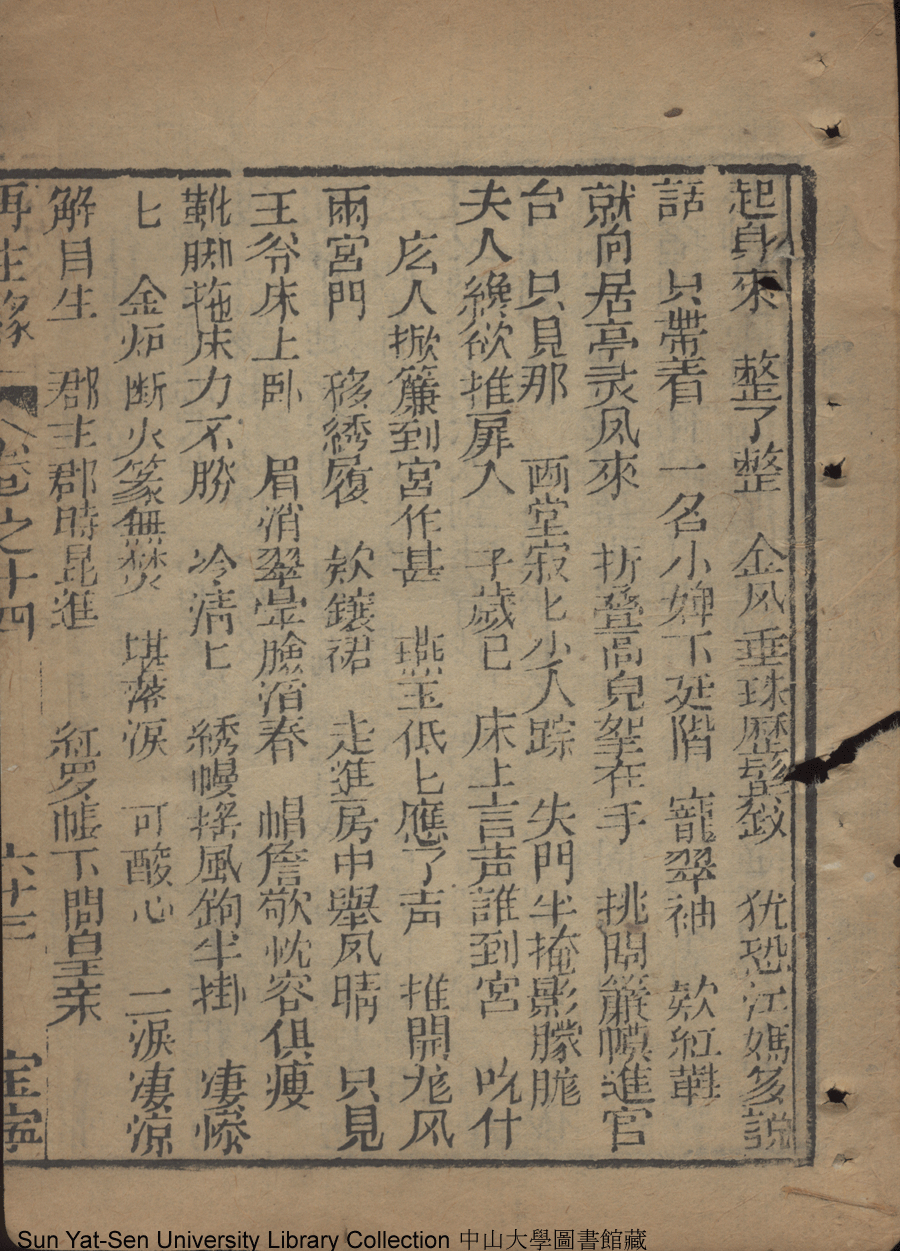 起身來　整了整　金风垂珠歷鬓釵　犹恐江媽多説
話　只帶着　一名小婢下廷階　寵翠袖　欵紅鞋
就向居亭灵凤來　折叠高皃拏在手　挑開簾幙進宮
台　只見那　画堂寂匕少人踪　失門半掩影朦朧
夫人纔欲推扉入　子歲已　床上言声誰到宮　吮什
庅人掀簾到宮作甚　燕玉低匕應了声　推開尨风
兩宮門　移綉履　欵鑲裙　走進房中舉凤睛　只見
王爷床上卧　眉消翠暈臉消春　帽簷欹枕容俱痩
靴脚拖床力不勝　冷清匕　綉幔摇風鉤半掛　凄惨
匕　金炉断火篆無焚　堪落淚　可酸心　二淚凄凉
解目生　郡主郡時晃進　紅罗帳下問皇亲
再生緣　卷之十四　六十三　宝寧
Sun Yat-Sen University Library Collection 中山大學圖書館藏